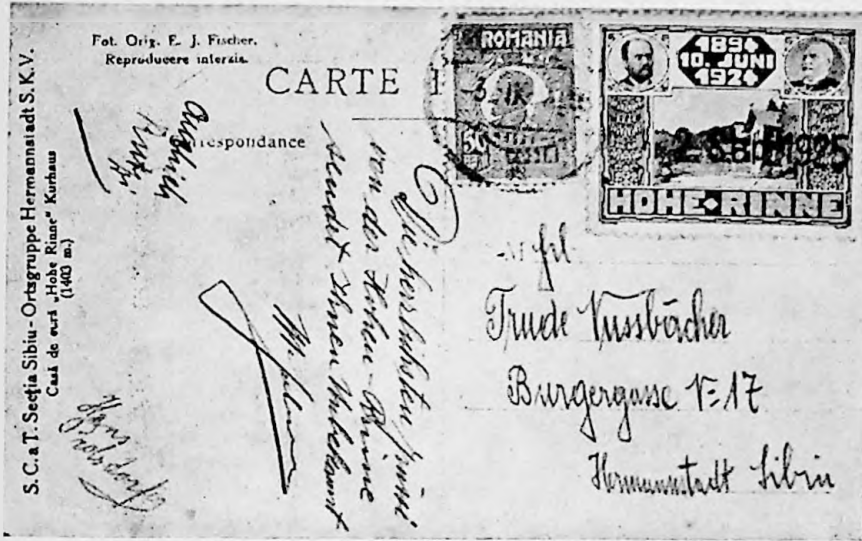 S.C.a T. Secția Sibiu - Ortsgruppe Hermannstadt S.K.V.
Casă de cură „Hohe Rinne" Kurhaus
(1403 m.)
Fot. Orig. E. J. Fischer.
Reproducere interzis.
CARTE
respondance
ROMANIA
-3 IX
50
1894
10. JUNI
1924
2. Sep. 1925
HOHE RINNE
Die herzlichsten
von der Hohen-Rinne
sendet Ihnen Unbekannt
Frl
Trude Nussbächer
Burgergasse N= 17
Hermannstadt Sibiu
Hans